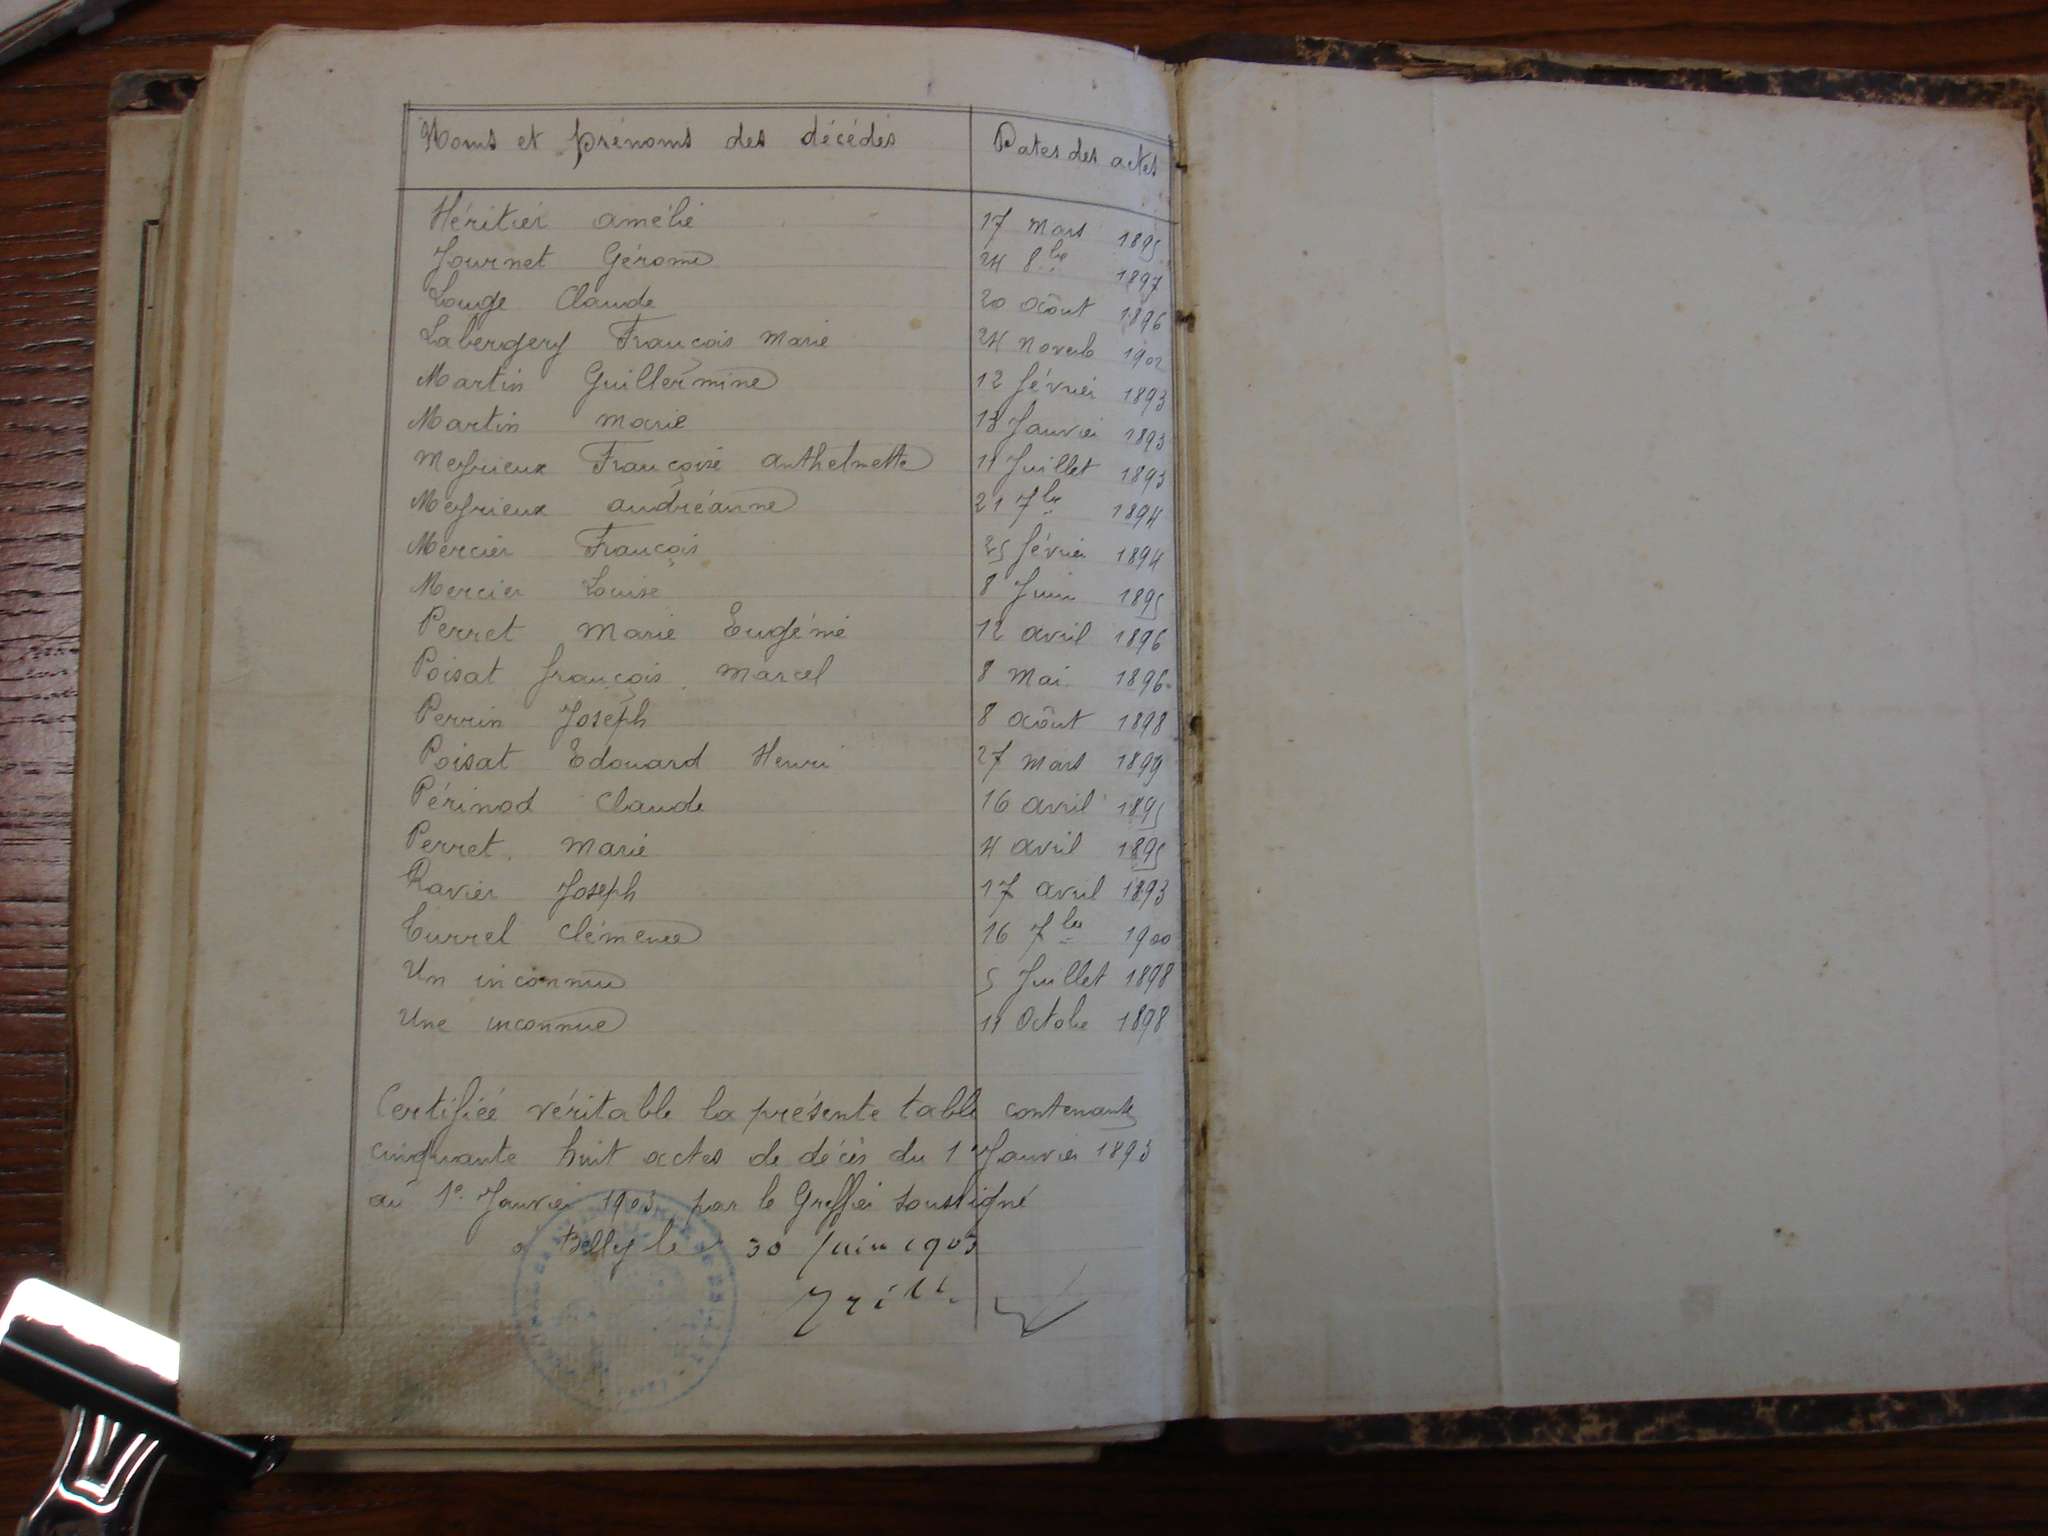 Noms et prénoms des décédés Dates des actes
Héritier Amélie 17 Mars 1895
Journet Gérome 24 8bre 1897
Louge Claude 20 Août 1896
Labergery François Marie 24 Novemb 1902
Martin Guillermine 12 février 1893
Martin Marie 13 Janvier 1893
Meyrieux Françoise Anthelmette 11 Juillet 1893
Meyrieux Andréanne 21 7bre 1894
Mercier François 25 février 1894
Mercier Louise 8 Juin 1895
Perret Marie Eugénie 12 avril 1896
Poisat françois Marcel 8 Mai 1896
Perrin Joseph 8 Août 1898
Poisat Edouard Henri 27 Mars 1899
Périnod Claude 16 avril 1895
Perret Marie 4 avril 1895
Ravier Joseph 17 avril 1893
Turrel Clémence 16 7bre 1900
Un inconnu 5 Juillet 1898
Une inconnue 11 Octobre 1898
Certifiée véritable la présente table contenant
cinquante huit actes de décès du 1er Janvier 1893
au 1er Janvier 1903 par le Greffier soussigné
à Belley le 30 Juin 1903